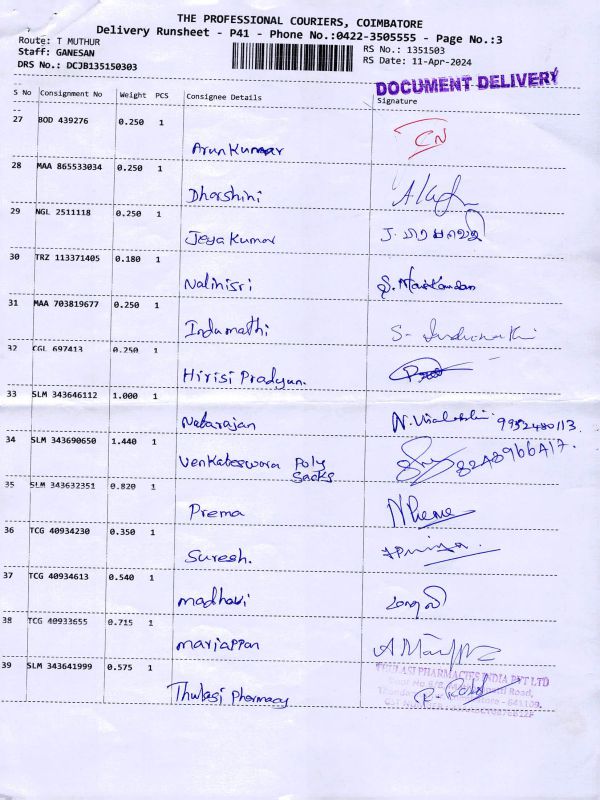 THE PROFESSIONAL COURIERS, COIMBATORE
Delivery Runsheet - P41 - Phone No.:0422-3505555 - Page No.:3
Route: T MUTHUR
Staff: GANESAN
DRS No.: DCJB135150303
RS No.: 1351503
RS Date: 11-Apr-2024
DOCUMENT DELIVERY
S No Consignment No Weight PCS Consignee Details Signature
27 BOD 439276 0.250 1
ArunKumar CN
28 MAA 865533034 0.250 1
Dharshini
29 NGL 2511118 0.250 1
Jeya Kumar
30 TRZ 113371405 0.180 1
Nalinisri
31 MAA 703819677 0.250 1
Indumathi
32 CGL 697413 0.250 1
Hirisi Pradyun.
33 SLM 343646112 1.000 1
Natarajan 9952480113.
34 SLM 343690650 1.440 1
Venkateswara Poly
Sacks
35 SLM 343632351 0.820 1
Prema
36 TCG 40934230 0.350 1
Suresh.
37 TCG 40934613 0.540 1
madhavi
38 TCG 40933655 0.715 1
mariappan
39 SLM 343641999 0.575 1
THULASI PHARMACIES INDIA PVT LTD
Thulasi Pharmacy